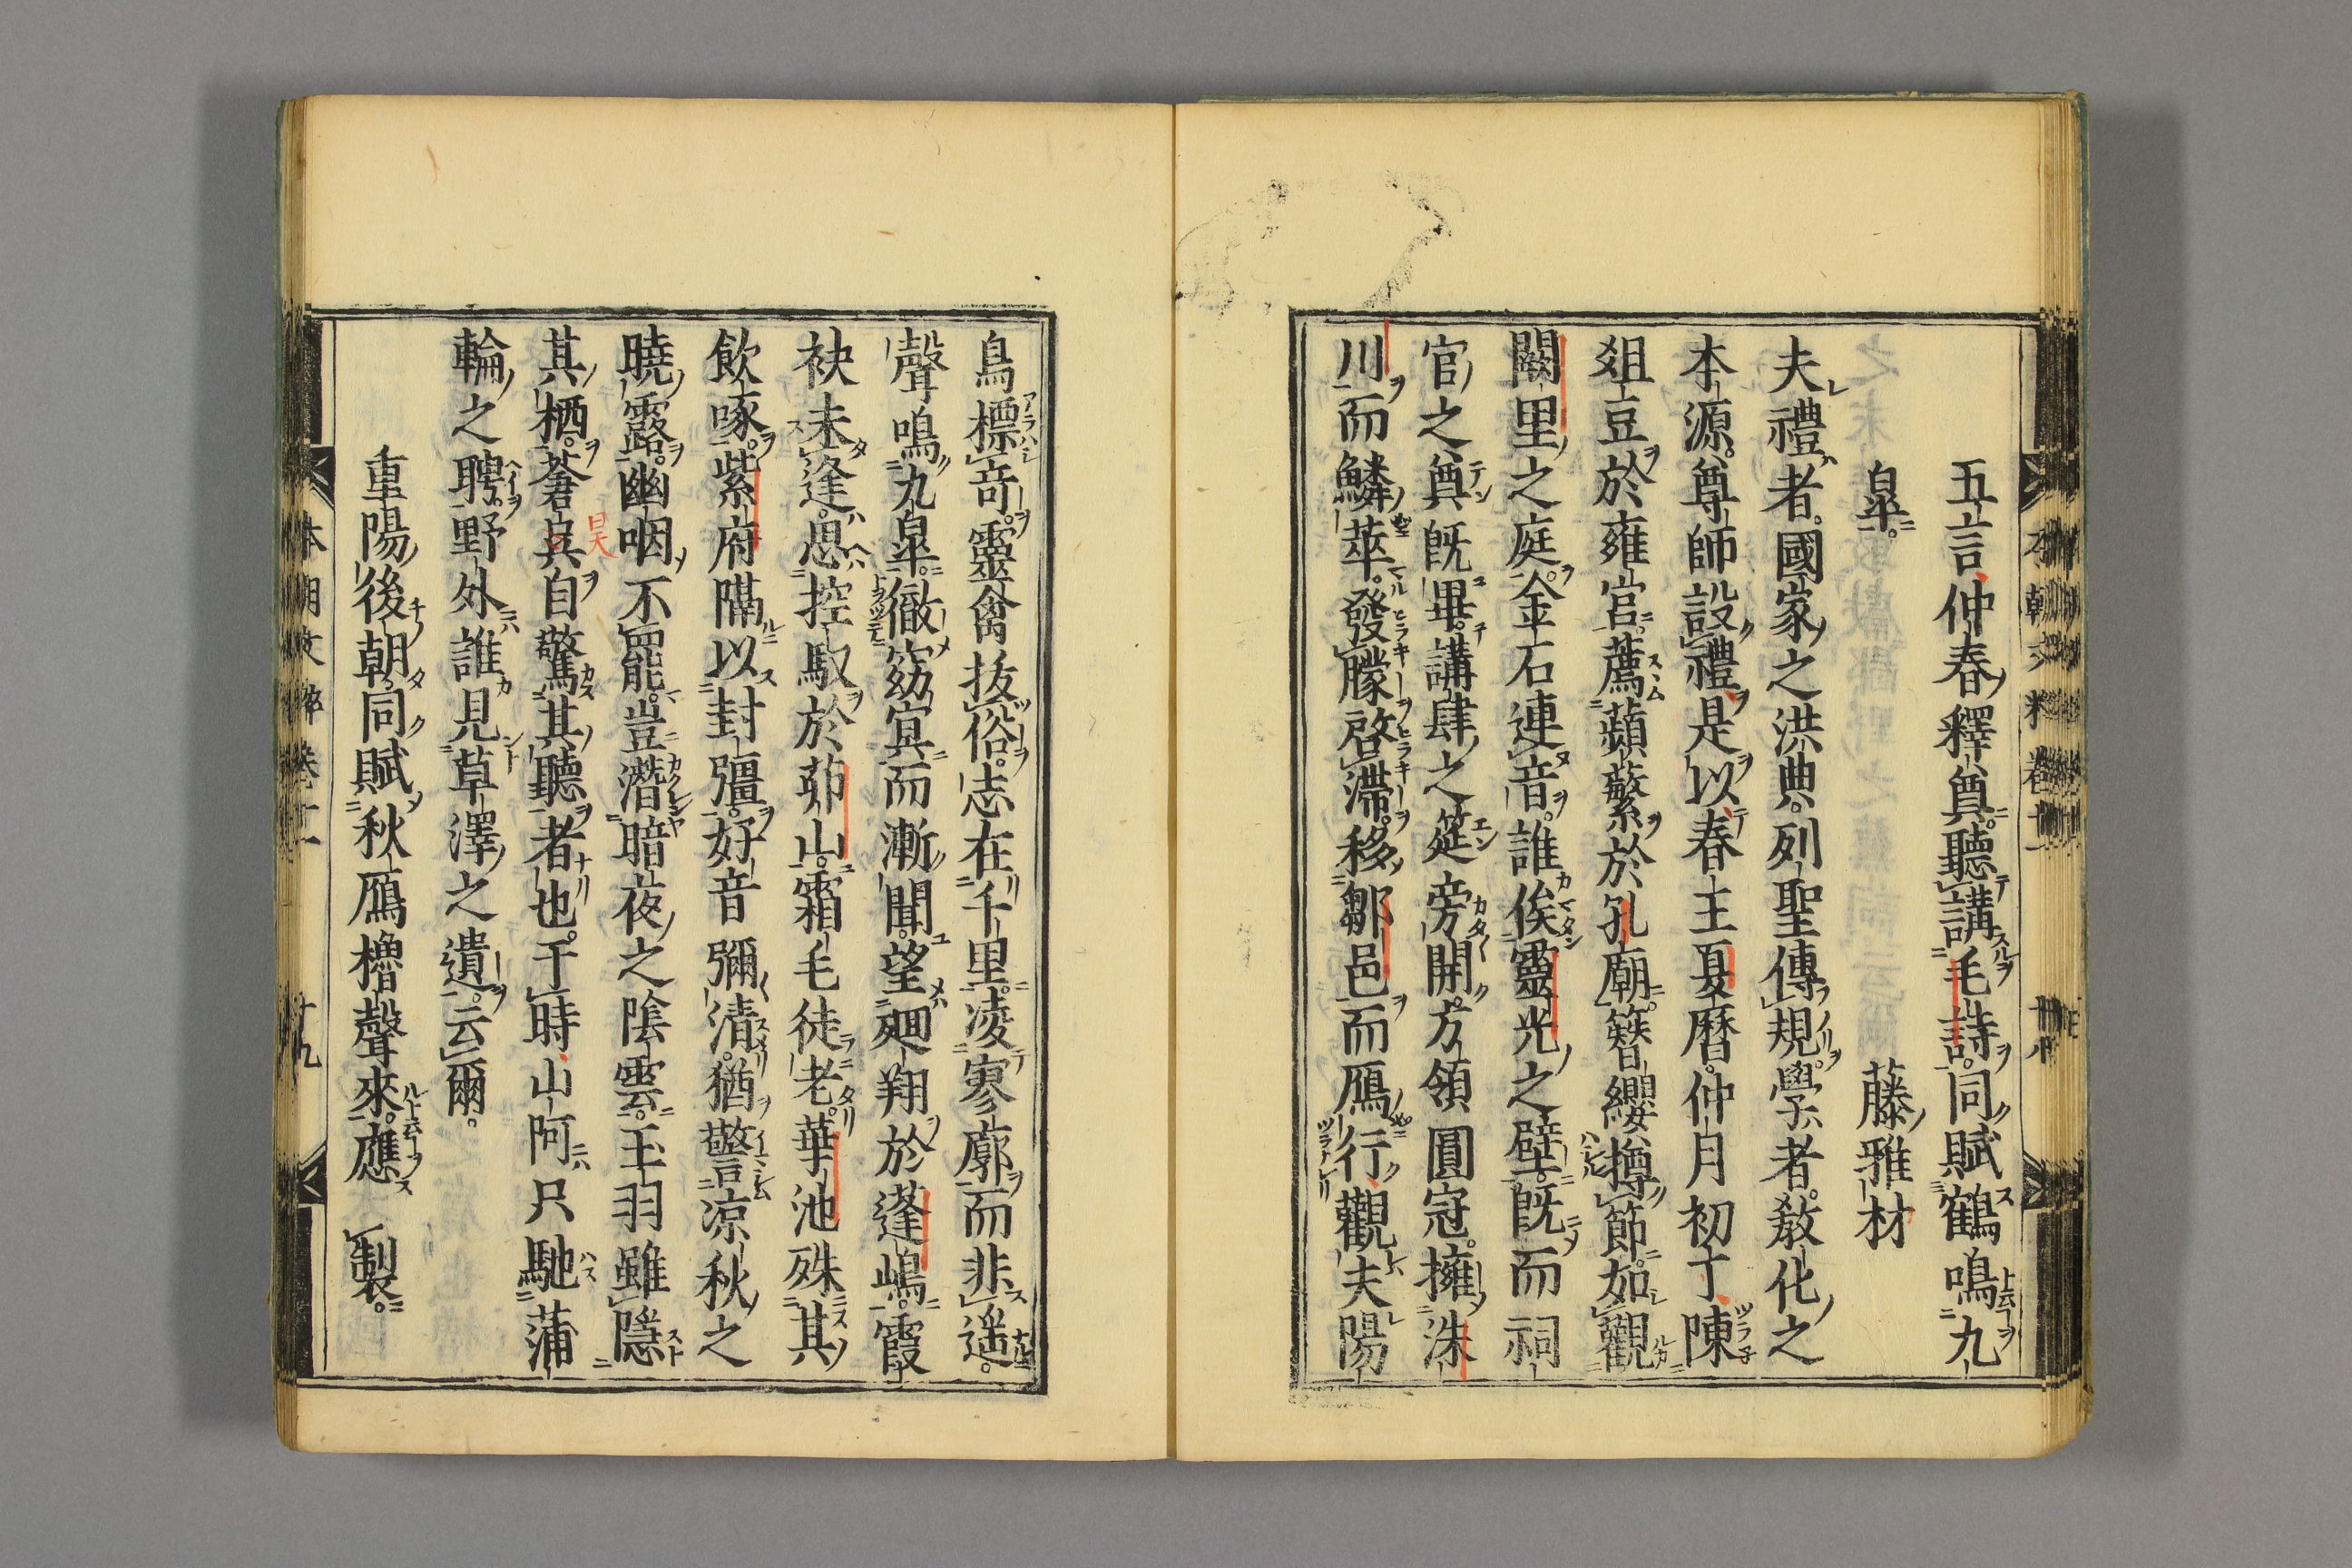 五言仲春釋奠聽講毛詩同賦鶴鳴九
皐
藤雅材
夫禮者國家之洪典列聖傳規學者教化之
本源尊師設禮是以春王夏曆仲月初丁陳
俎豆於雍宮薦蘋蘩於孔廟簪纓撙節如觀
闕里之庭金石連音誰俟靈光之壁既而祠
官之奠既畢講肆之筵旁開方領圓冠擁洙
川而鱗萃發朦啓滯移鄒邑而鴈行觀夫陽
鳥標奇靈禽抜俗志在千里凌寥廓而非遥
聲鳴九皐徹窈冥而漸聞望廻翔於蓬嶋霞
袂未逢思控馭於茆山霜毛徒老華池殊其
飲啄紫府隔以封彊好音彌清猶警凉秋之
曉露幽咽不罷豈潛暗夜之陰雲玉羽雖隱
其栖蒼昊自驚其聽者也于時山阿只馳蒲
輪之聘野外誰見草澤之遺云爾
重陽後朝同賦秋鴈櫓聲來應製
本朝文粹卷十一
十九